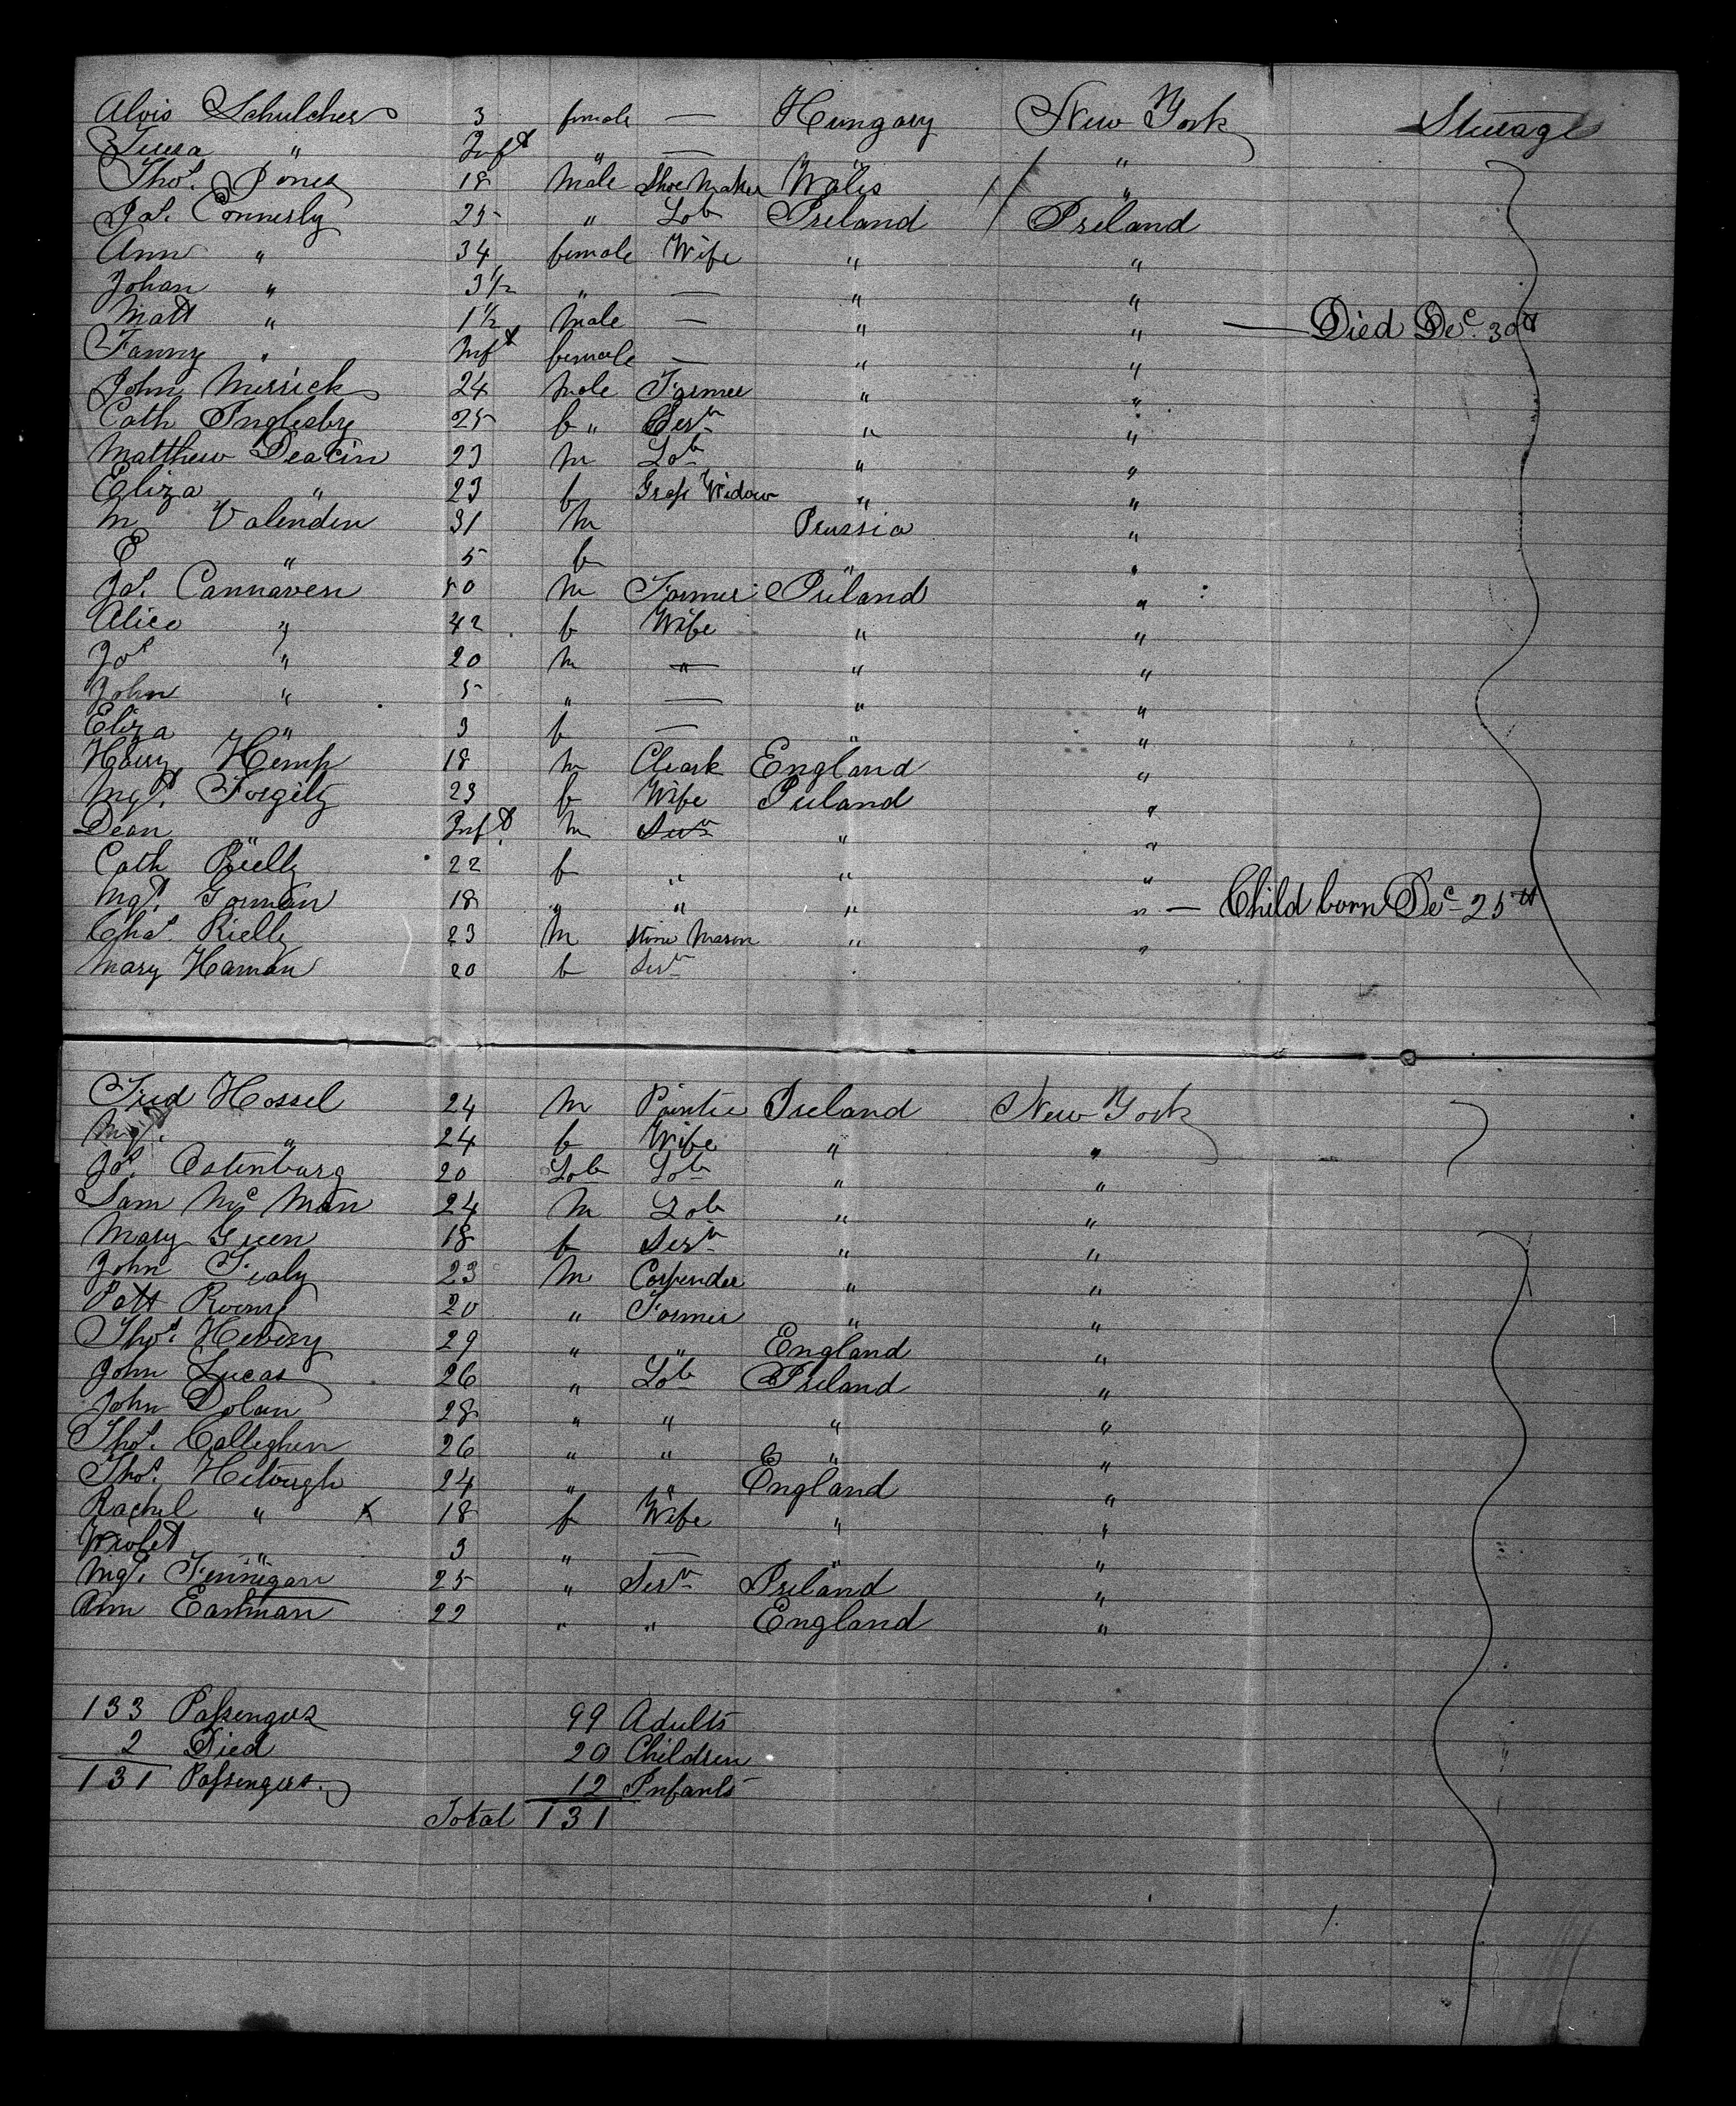 Alois Schulcher 3 female — Hungary New York Steerage
" Inft " — "
Thos. Jones 18 Male Shoe Maker Wales "
Jas. Connerly 25 " Lab Ireland Ireland
Ann " 34 female Wife " "
Johan " 3 1/2 " — " "
Matt " 1 1/2 Male — " " — Died Dec. 30th
Fanny " Inft female — " "
John Merrick 24 Male Farmer " "
Cath Inglesby 25 f " Serv " "
Matthew Deacin 23 m Lab " "
Eliza " 23 f Grass Widow " "
M Valendin 31 m Prussia "
E " 5 f " "
Jas. Cannaven 50 m Farmer Ireland "
Alice " 42 f Wife " "
Jos " 20 m " " "
John " 5 " — " "
Eliza " 3 f — " "
Harry Hemp 18 m Cleark England "
Mgt. Forgity 23 f Wife Ireland "
Dean " Inft. m Serv " "
Cath Rielly 22 f " " "
Mgt. Gorman 18 " " " " — Child born Dec 25th
Chas. Rielly 23 m Stone Mason " "
Mary Haman 20 f Serv
Fred Hossel 24 m Painter Ireland New York
Mgt. " 24 f Wife " "
Jos. Catenburg 20 Lab Lab " "
Sam Mc Man 24 m Lab " "
Mary Green 18 f Serv " "
John 23 m Carpender " "
Patt Roony 20 " Farmer " "
Thos. 29 " " England "
John Lucas 26 " Lab Ireland "
John Dolan 28 " " " "
Thos. Calleghen 26 " " " "
Thos. 24 " " England "
Rachel " x 18 f Wife " "
" 3 " — " "
Mgt. Finnigan 25 " Serv Ireland "
Ann Eastman 22 " " England "
133 Passengers 99 Adults
2 Died 20 Children
131 Passengers. 12 Infants
Total 131